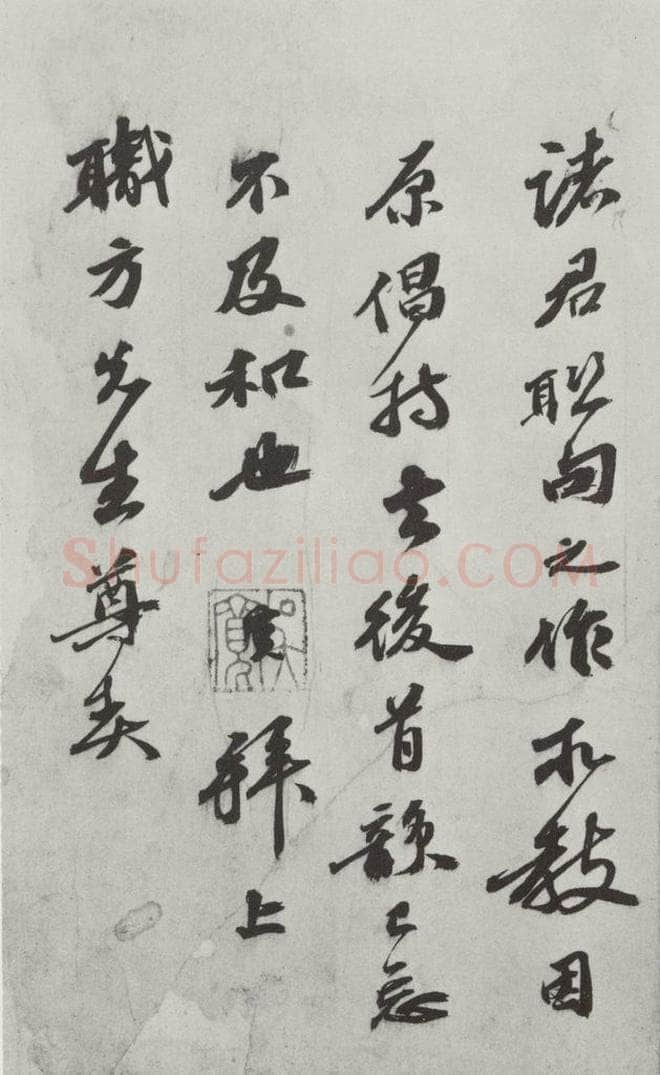 諸君聯句之作求教因
原倡持去後首韻已忘
不及和也 寬拜上
職方先生尊契
吳寬
Shufaziliao.COM